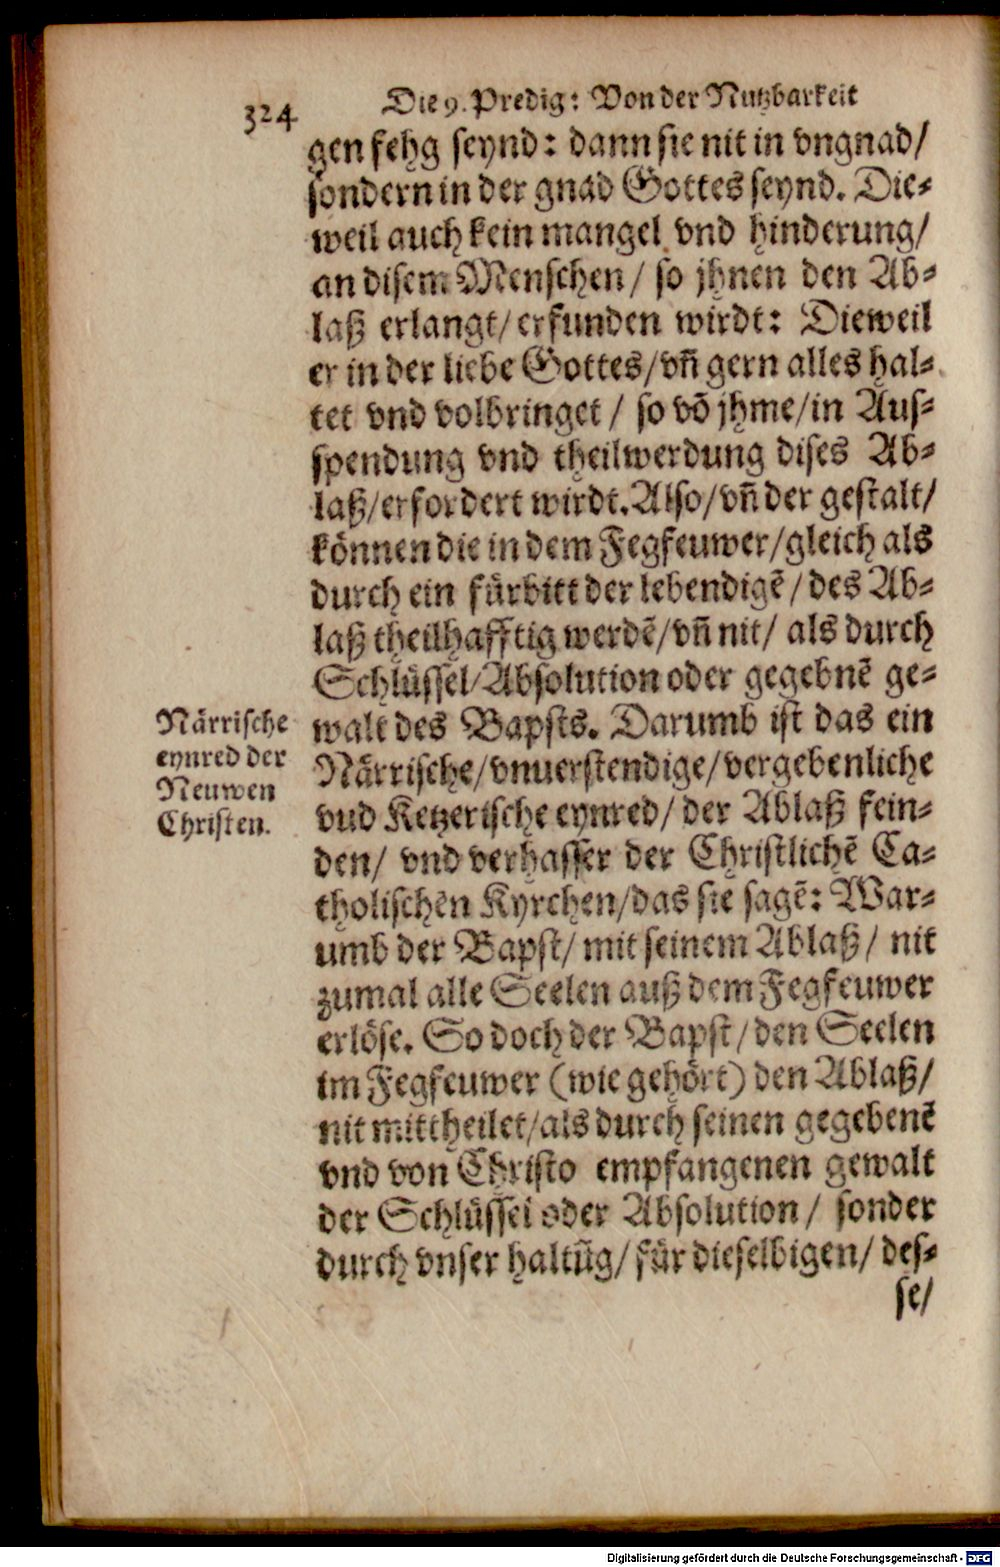 324
Die 9. Predig: Von der Nutzbarkeit
gen fehg seynd: dann sie nit in vngnad/
sondern in der gnad Gottes seynd. Die-
weil auch kein mangel vnd hinderung/
an disem Menschen/ so jhnen den Ab-
laß erlangt/ erfunden wirdt: Dieweil
er in der liebe Gottes/ vñ gern alles hal-
tet vnd volbringet/ so võ jhme/ in Aus-
spendung vnd theilwerdung dises Ab-
laß/ erfordert wirdt. Also/ vñ der gestalt/
können die in dem Fegfeuwer/ gleich als
durch ein fürbitt der lebendigẽ/ des Ab-
laß theilhafftig werdẽ/ vñ nit/ als durch
Schlüssel/ Absolution oder gegebnẽ ge-
walt des Bapsts. Darumb ist das ein
Närrische/ vnuerstendige/ vergebenliche
vud Ketzerische eynred/ der Ablaß fein-
den/ vnd verhasser der Christlichẽ Ca-
tholischen Kyrchen/ das sie sagẽ: War-
umb der Bapst/ mit seinem Ablaß/ nit
zumal alle Seelen auß dem Fegfeuwer
erlöse. So doch der Bapst/ den Seelen
im Fegfeuwer (wie gehört) den Ablaß/
nit mittheilet/ als durch seinen gegebenẽ
vnd von Christo empfangenen gewalt
der Schlüssel oder Absolution/ sonder
durch vnser haltũg/ für dieselbigen/ des-
se/
Närrische
eynred der
Neuwen
Christen.
Digitalisierung gefördert durch die Deutsche Forschungsgemeinschaft - DFG